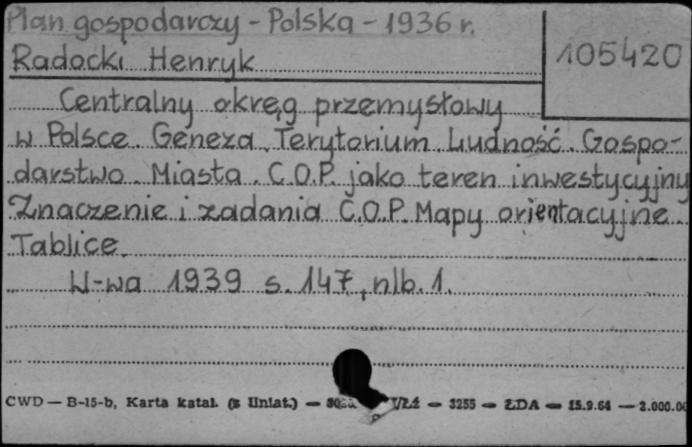 Plan gospodarczy - Polska - 1936 r.
Radocki Henryk
105420
Centralny okręg przemysłowy
w Polsce. Geneza. Terytorium. Ludność. Gospo-
darstwo. Miasta. C.O.P. jako teren inwestycyjny
Znaczenie i zadania C.O.P. Mapy orientacyjne.
Tablice.
W-wa 1939 s. 147, nlb. 1.
CWD — B-15-b, Karta katal. (z liniat.) — — 3255 — ŁDA — 15.9.64 — 2.000.00